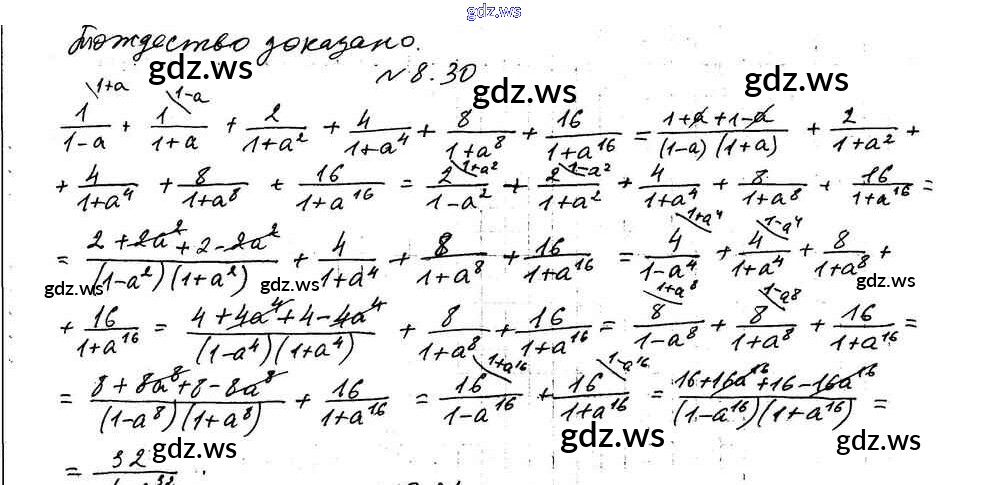 gdz.ws
Тождество доказано.
gdz.ws
№ 8.30
gdz.ws gdz.ws
\1+a \1-a
1/(1-a) + 1/(1+a) + 2/(1+a²) + 4/(1+a⁴) + 8/(1+a⁸) + 16/(1+a¹⁶) = (1+a+1-a)/((1-a)(1+a)) + 2/(1+a²) +
\1+a² \1-a²
+ 4/(1+a⁴) + 8/(1+a⁸) + 16/(1+a¹⁶) = 2/(1-a²) + 2/(1+a²) + 4/(1+a⁴) + 8/(1+a⁸) + 16/(1+a¹⁶) =
\1+a⁴ \1-a⁴
= (2+2a²+2-2a²)/((1-a²)(1+a²)) + 4/(1+a⁴) + 8/(1+a⁸) + 16/(1+a¹⁶) = 4/(1-a⁴) + 4/(1+a⁴) + 8/(1+a⁸) +
gdz.ws gdz.ws gdz.ws gdz.ws
\1+a⁸ \1-a⁸
+ 16/(1+a¹⁶) = (4+4a⁴+4-4a⁴)/((1-a⁴)(1+a⁴)) + 8/(1+a⁸) + 16/(1+a¹⁶) = 8/(1-a⁸) + 8/(1+a⁸) + 16/(1+a¹⁶) =
\1+a¹⁶ \1-a¹⁶
= (8+8a⁸+8-8a⁸)/((1-a⁸)(1+a⁸)) + 16/(1+a¹⁶) = 16/(1-a¹⁶) + 16/(1+a¹⁶) = (16+16a¹⁶+16-16a¹⁶)/((1-a¹⁶)(1+a¹⁶)) =
gdz.ws gdz.ws gdz.ws
= 32/(1-a³²).